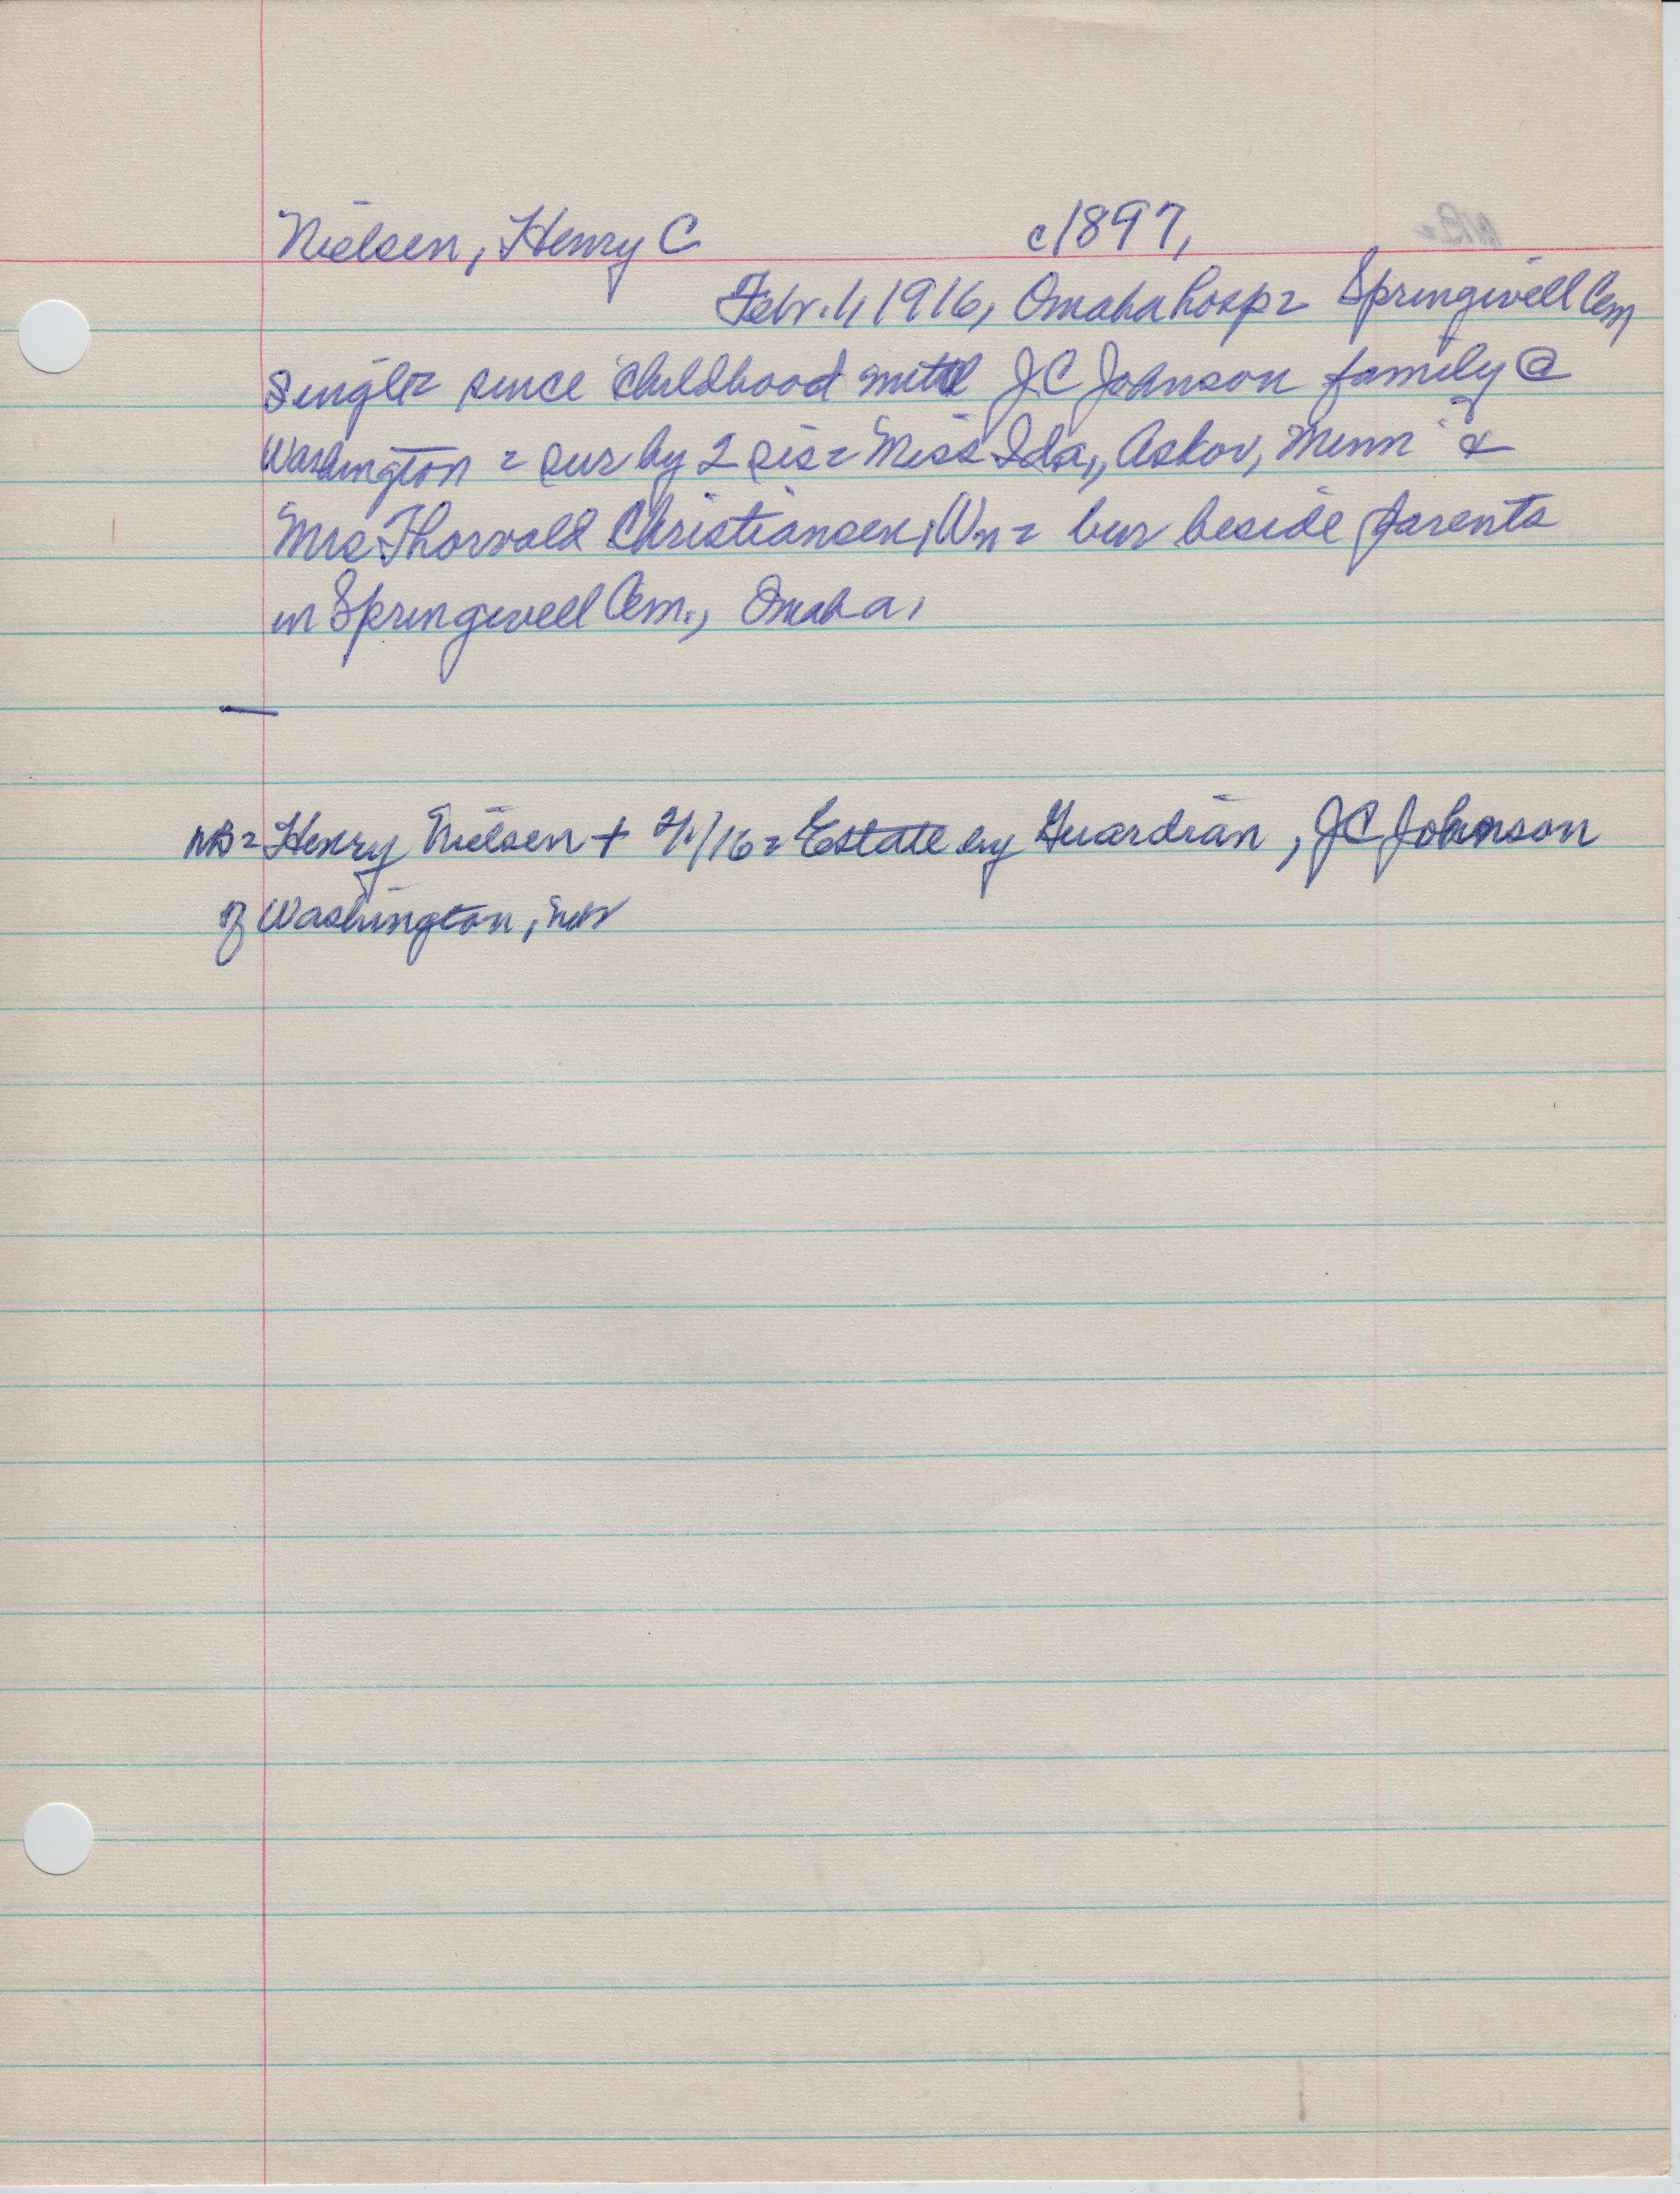 Nielsen, Henry C c1897,
Febr. 1, 1916, Omaha hosp = Springwell Cem
Single = since childhood with J C Johnson family @
Washington = sur by 2 sis = Miss Ida,, Askov, Minn &
Mrs Thorvald Christiansen, Wn = bur beside parents
in Springwell Cem., Omaha,
—
NB = Henry Nielsen + 2/1/16 = Estate by Guardian, J C Johnson
of Washington, Nebr